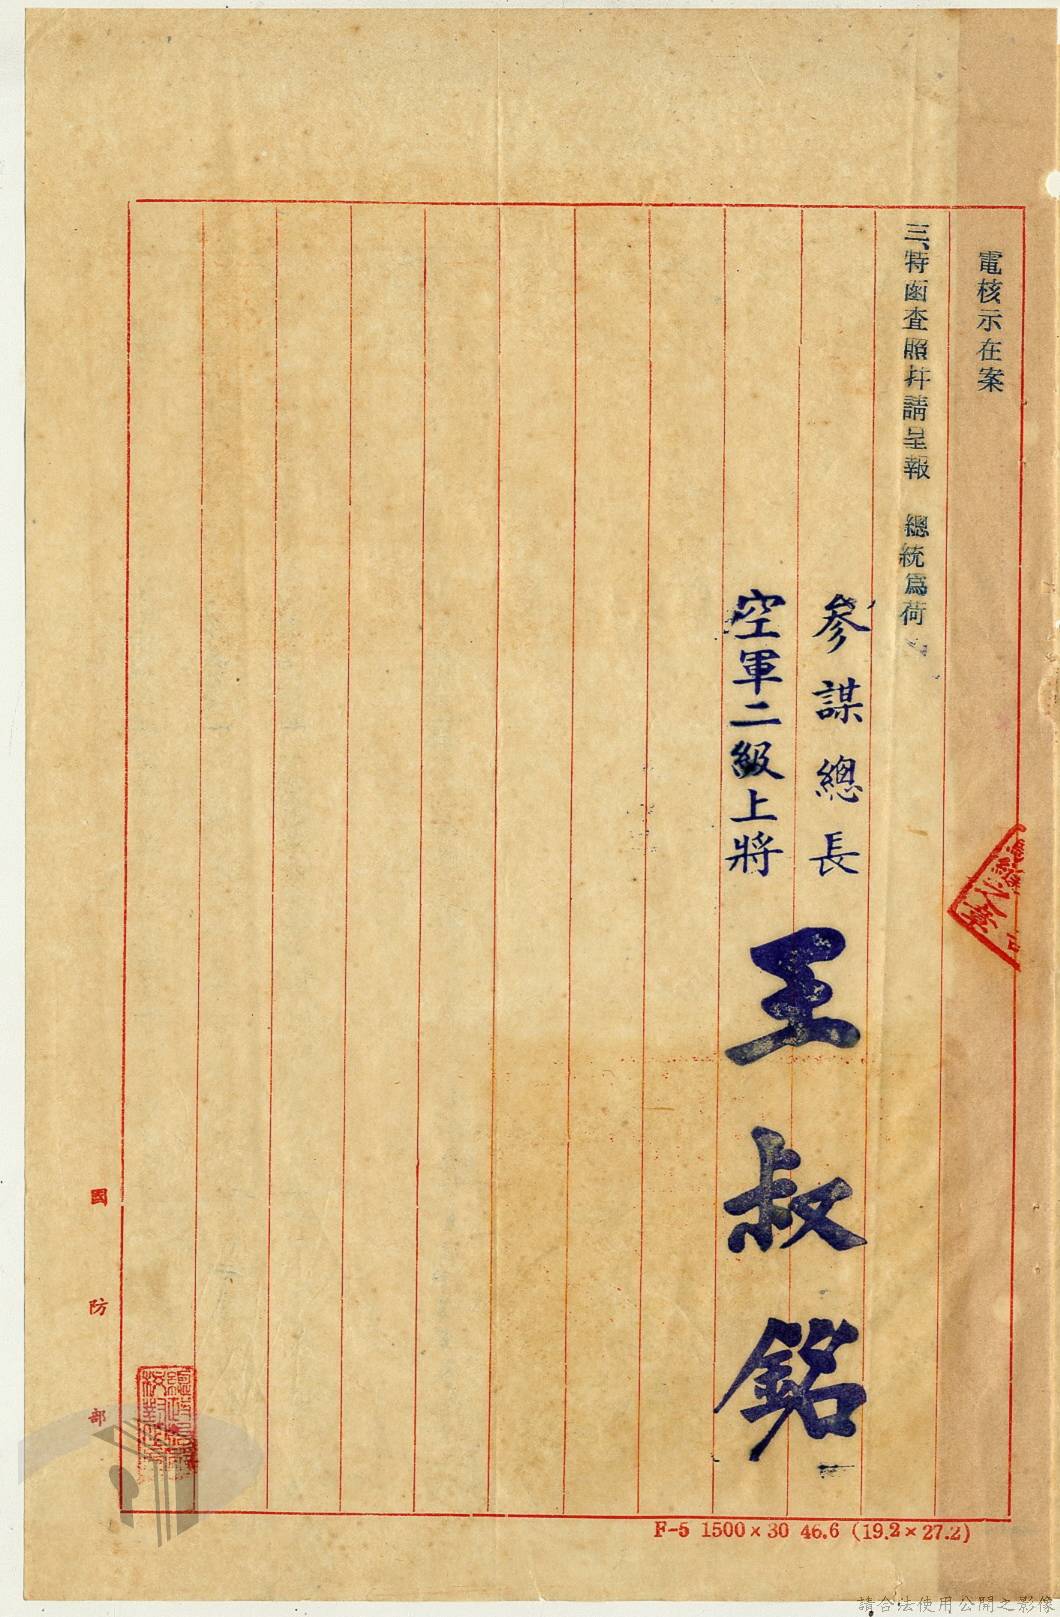 電核示在案
三、特函查照并請呈報　總統為荷
參謀總長
空軍二級上將
王叔銘
國防部
F-5 1500×30 46.6 (19.2×27.2)
請合法使用公開之影像